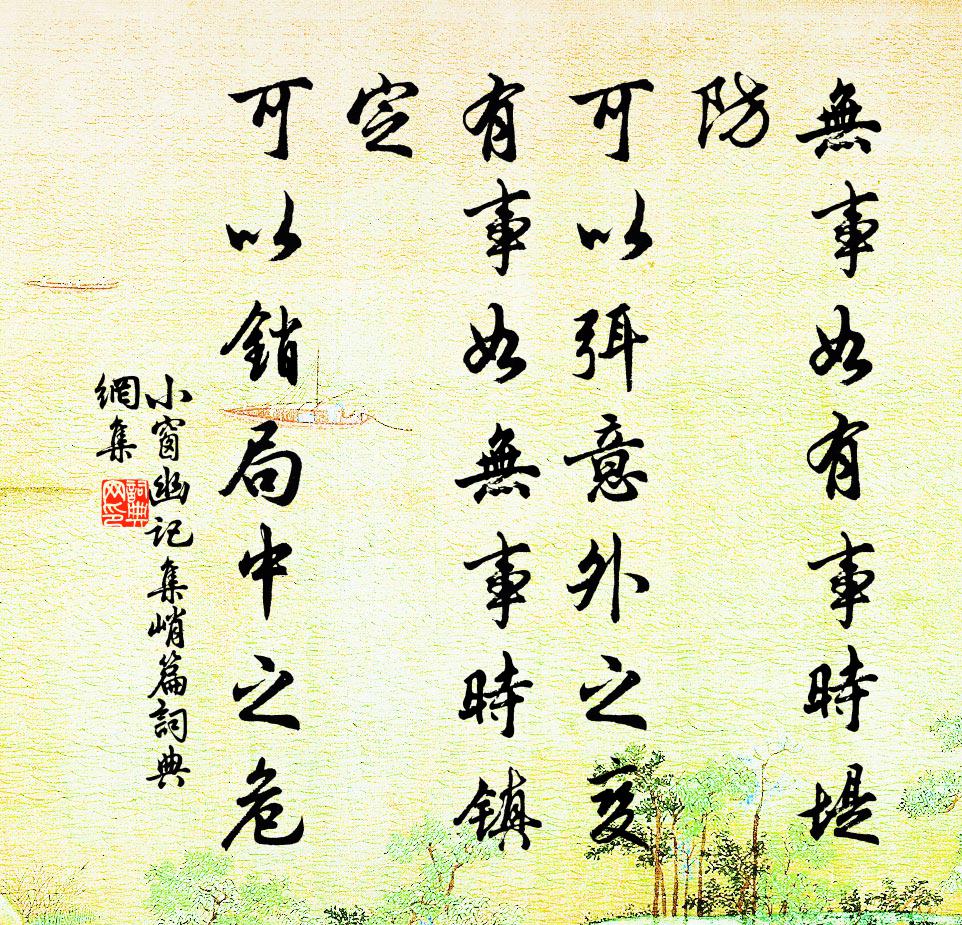 無事如有事時堤
防
可以弭意外之變
有事如無事時鎮
定
可以銷局中之危
小窗幽记集峭篇詞典
網集
詞典
网印